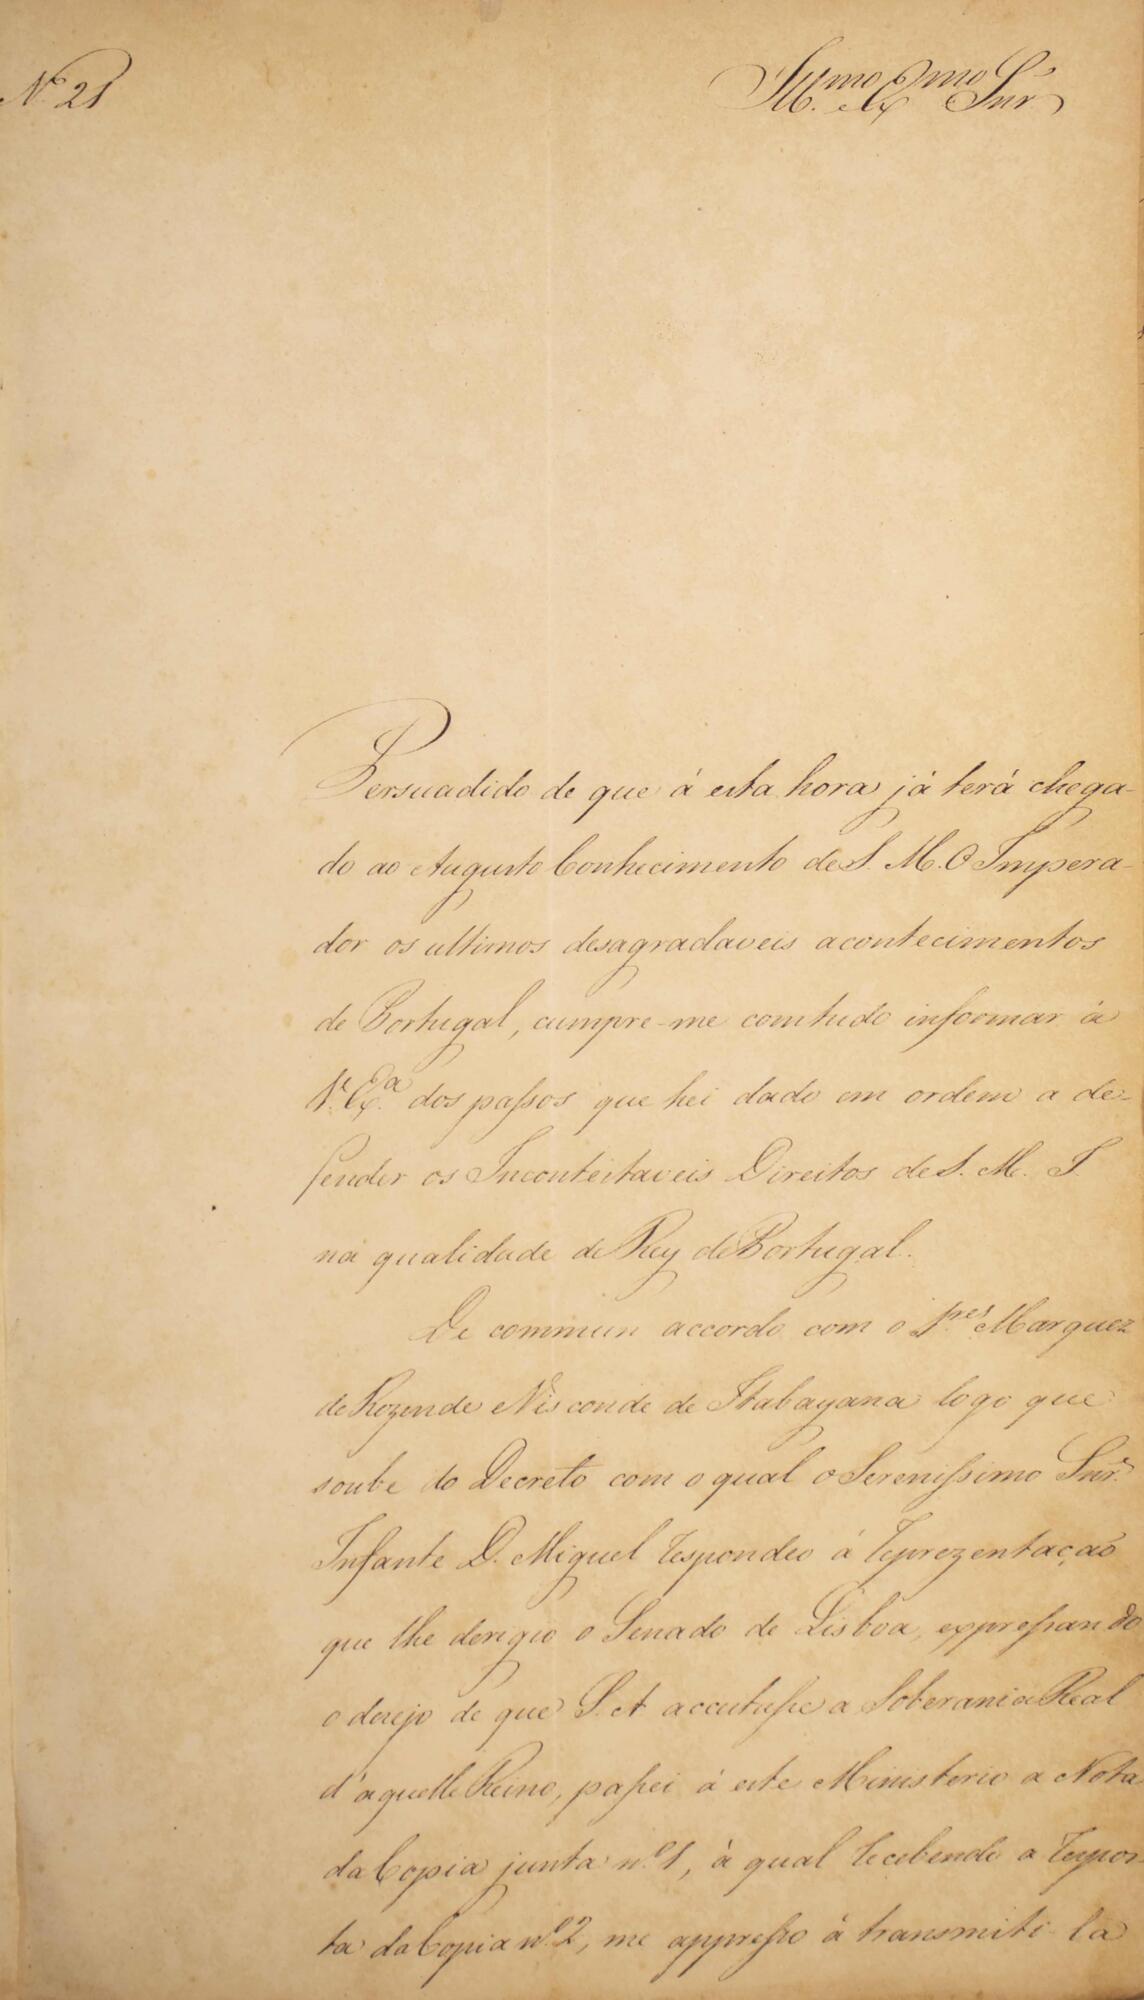 N.º 21
Ill.mo Ex.mo Snr.
Persuadido de que á esta hora já terá chega-
do ao Augusto Conhecimento de S. M. O Impera-
dor os ultimos desagradaveis acontecimentos
de Portugal, cumpre-me comtudo informar á
V. Ex.a dos passos que hei dado em ordem a de-
fender os Incontestaveis Direitos de S. M. I.
na qualidade de Rey de Portugal.
De commun accordo com o S.res Marquez
de Rezende Visconde de Itabayana logo que
soube do Decreto com o qual o Serenissimo Snr.
Infante D. Miguel respondeo á reprezentação
que lhe derigio o Senado de Lisboa, expressando
o desejo de que S. A acceitasse a Soberania Real
d'aquelle Reino, passei á este Ministerio a Nota
da Copia junta n.º 1, á qual recebendo a respos-
ta da Copia n.º 2, me appresso á transmiti-la